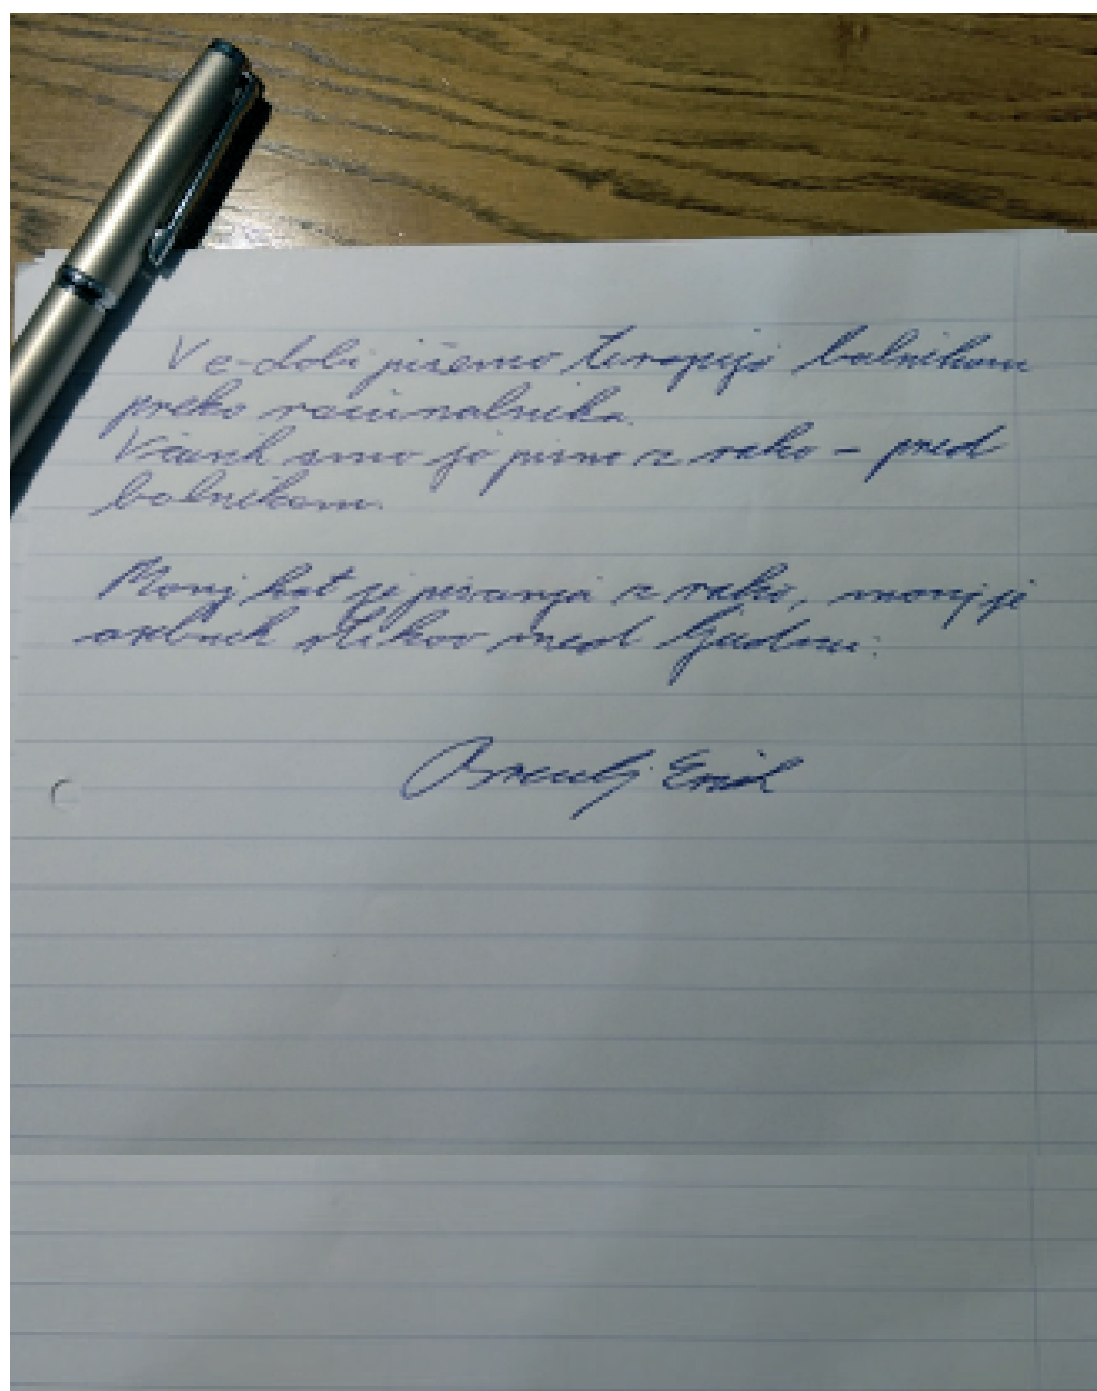 V e-dobi pišemo terapijo bolnikom
preko računalnika.
Včasih smo jo pisno z roko - pred
bolnikom.
Manj kot je pisanja z roko, manj je
osebnih stikov med ljudmi.
Emil